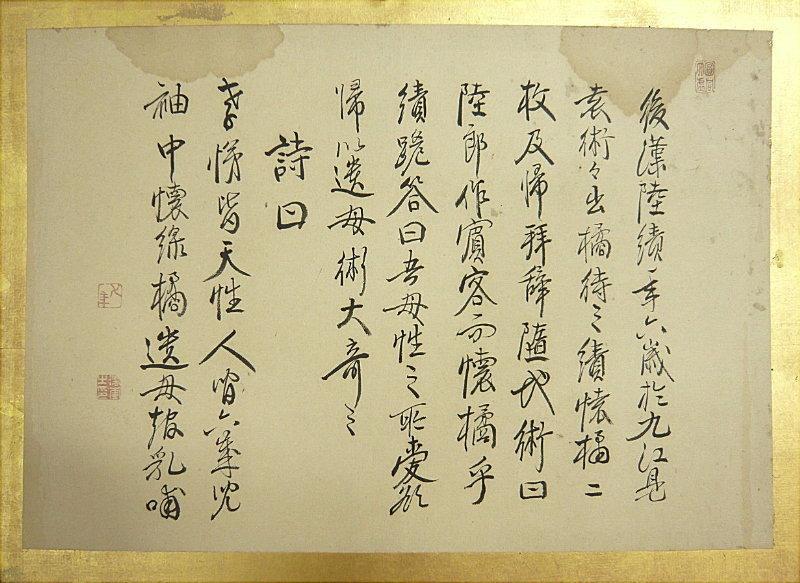 後漢陸績年六歳於九江見
袁術々出橘待之績懐橘二
枚及帰拝辞随地術曰
陸郎作賓客而懐橘乎
績跪答曰吾母性之所愛欲
帰以遺母術大奇之
詩曰
孝悌皆天性人間六歳児
袖中懐緑橘遺母報乳哺